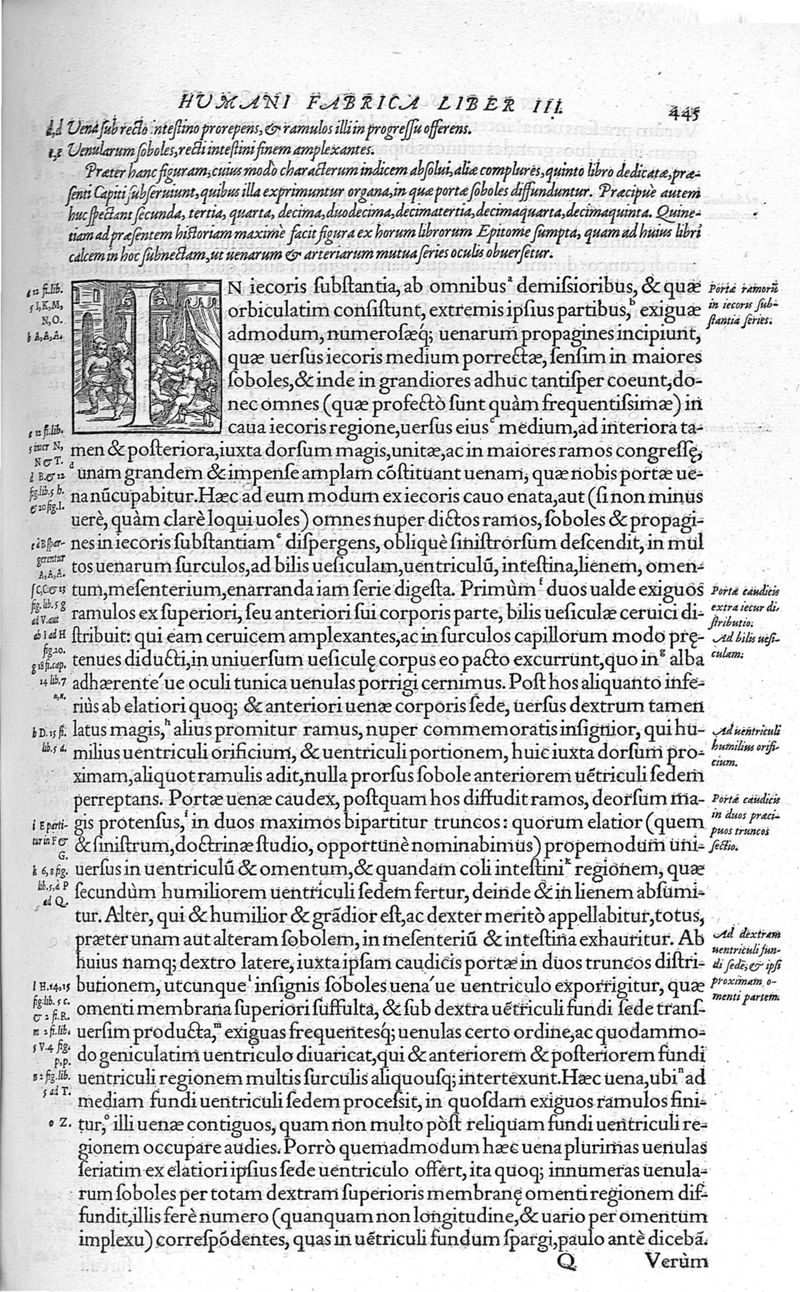 HUMANI FABRICA LIBER III.
445
d,d Uena sub recto intestino prorepens, & ramulos illi in progressu offerens.
e,e Venularum soboles, recti intestini finem amplexantes.
Præter hanc figuram, cuius modò characterum indicem absolui, aliæ complures, quinto libro dedicatæ, præ-
senti Capiti subseruiunt, quibus illa exprimuntur organa, in quæ portæ soboles diffunduntur. Præcipuè autem
huc spectant secunda, tertia, quarta, decima, duodecima, decimatertia, decimaquarta, decimaquinta. Quine-
tiam ad præsentem historiam maximè facit figura ex horum librorum Epitome sumpta, quam ad huius libri
calcem in hoc subnectam, ut uenarum & arteriarum mutua series oculis obuersetur.
IN iecoris substantia, ab omnibus a demissioribus, & quæ
orbiculatim consistunt, extremis ipsius partibus, b exiguæ
admodum, numerosæq; uenarum propagines incipiunt,
quæ uersus iecoris medium porrectæ, sensim in maiores
soboles, & inde in grandiores adhuc tantisper coeunt, do-
nec omnes (quæ profectò sunt quàm frequentissimæ) in
caua iecoris regione, uersus eius c medium, ad interiora ta-
men & posteriora, iuxta dorsum magis, unitæ, ac in maiores ramos congressę,
d unam grandem & impensè amplam cõstituant uenam, quæ nobis portæ ue-
na nũcupabitur. Hæc ad eum modum ex iecoris cauo enata, aut (si non minus
uerè, quàm clarè loqui uoles) omnes nuper dictos ramos, soboles & propagi-
nes in iecoris substantiam e dispergens, obliquè sinistrorsum descendit, in mul
tos uenarum surculos, ad bilis uesiculam, uentriculũ, intestina, lienem, omen-
tum, mesenterium, enarranda iam serie digesta. Primùm f duos ualde exiguos
ramulos ex superiori, seu anteriori sui corporis parte, bilis uesiculæ ceruici di-
stribuit: qui eam ceruicem amplexantes, ac in surculos capillorum modo prę-
tenues diducti, in uniuersum uesiculę corpus eo pacto excurrunt, quo in g alba
adhærente´ue oculi tunica uenulas porrigi cernimus. Post hos aliquanto infe-
riùs ab elatiori quoq; & anteriori uenæ corporis sede, uersus dextrum tamen
latus magis, h alius promitur ramus, nuper commemoratis insignior, qui hu-
milius uentriculi orificium, & uentriculi portionem, huic iuxta dorsum pro-
ximam, aliquot ramulis adit, nulla prorsus sobole anteriorem uẽtriculi sedem
perreptans. Portæ uenæ caudex, postquam hos diffudit ramos, deorsum ma-
gis protensus, i in duos maximos bipartitur truncos: quorum elatior (quem
& sinistrum, doctrinæ studio, opportunè nominabimus) propemodum uni-
uersus in uentriculũ & omentum, & quandam coli intestini k regionem, quæ
secundùm humiliorem uentriculi sedem fertur, deinde & in lienem absumi-
tur. Alter, qui & humilior & grãdior est, ac dexter meritò appellabitur, totus,
præter unam aut alteram sobolem, in mesenteriũ & intestina exhauritur. Ab
huius namq; dextro latere, iuxta ipsam caudicis portæ in duos truncos distri-
butionem, utcunque l insignis soboles uena´ue uentriculo exporrigitur, quæ
omenti membrana superiori suffulta, & sub dextra uẽtriculi fundi sede trans-
uersim producta, m exiguas frequentesq; uenulas certo ordine, ac quodammo-
do geniculatim uentriculo diuaricat, qui & anteriorem & posteriorem fundi
uentriculi regionem multis surculis aliquousq; intertexunt. Hæc uena, ubi n ad
mediam fundi uentriculi sedem processit, in quosdam exiguos ramulos fini-
tur, o illi uenæ contiguos, quam non multo pòst reliquam fundi uentriculi re-
gionem occupare audies. Porrò quemadmodum hæc uena plurimas uenulas
seriatim ex elatiori ipsius sede uentriculo offert, ita quoq; innumeras uenula-
rum soboles per totam dextram superioris membranę omenti regionem dif-
fundit, illis ferè numero (quanquam non longitudine, & uario per omentum
implexu) correspõdentes, quas in uẽtriculi fundum spargi, paulo antè dicebã.
Q Verùm
a 12 fi. lib.
5 I, K, M,
N, O.
b A, A, A.
c 12 fi. lib.
5 inter N,
N & T.
d B. & 12
fig. lib. 5 b.
& 20 fig. I.
A, A, A.
f C, C & 13
fig. lib. 5 g
ab I ad H
fig. 20.
g 18 fi. cap.
14 lib. 7
h D. 15 fi.
lib. 5 d.
i E parti-
tur in F &
G.
k 6, 8 fig.
lib. 5, à P
ad Q.
l H. 14, 15
fig. lib. 5 c.
& 2 fi. R.
m 2 fi. lib.
5 V. 4 fig.
p, p.
n 2 fig. lib.
5 ad T.
o Z.
Portæ ramorũ
in iecoris sub-
stantia series.
Portæ caudicis
extra iecur di-
stributio.
Ad bilis uesi-
culam.
Ad uentriculi
humilius orifi-
cium.
Portæ caudicis
in duos præci-
puos truncos
sectio.
Ad dextram
uentriculi fun-
di sedẽ, & ipsi
proximam o-
menti partem.